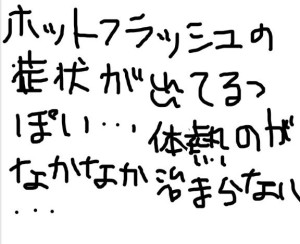 ホットフラッシュの
症状が出てるっ
ぽい… 体熱のが
なかなか治まらない
…